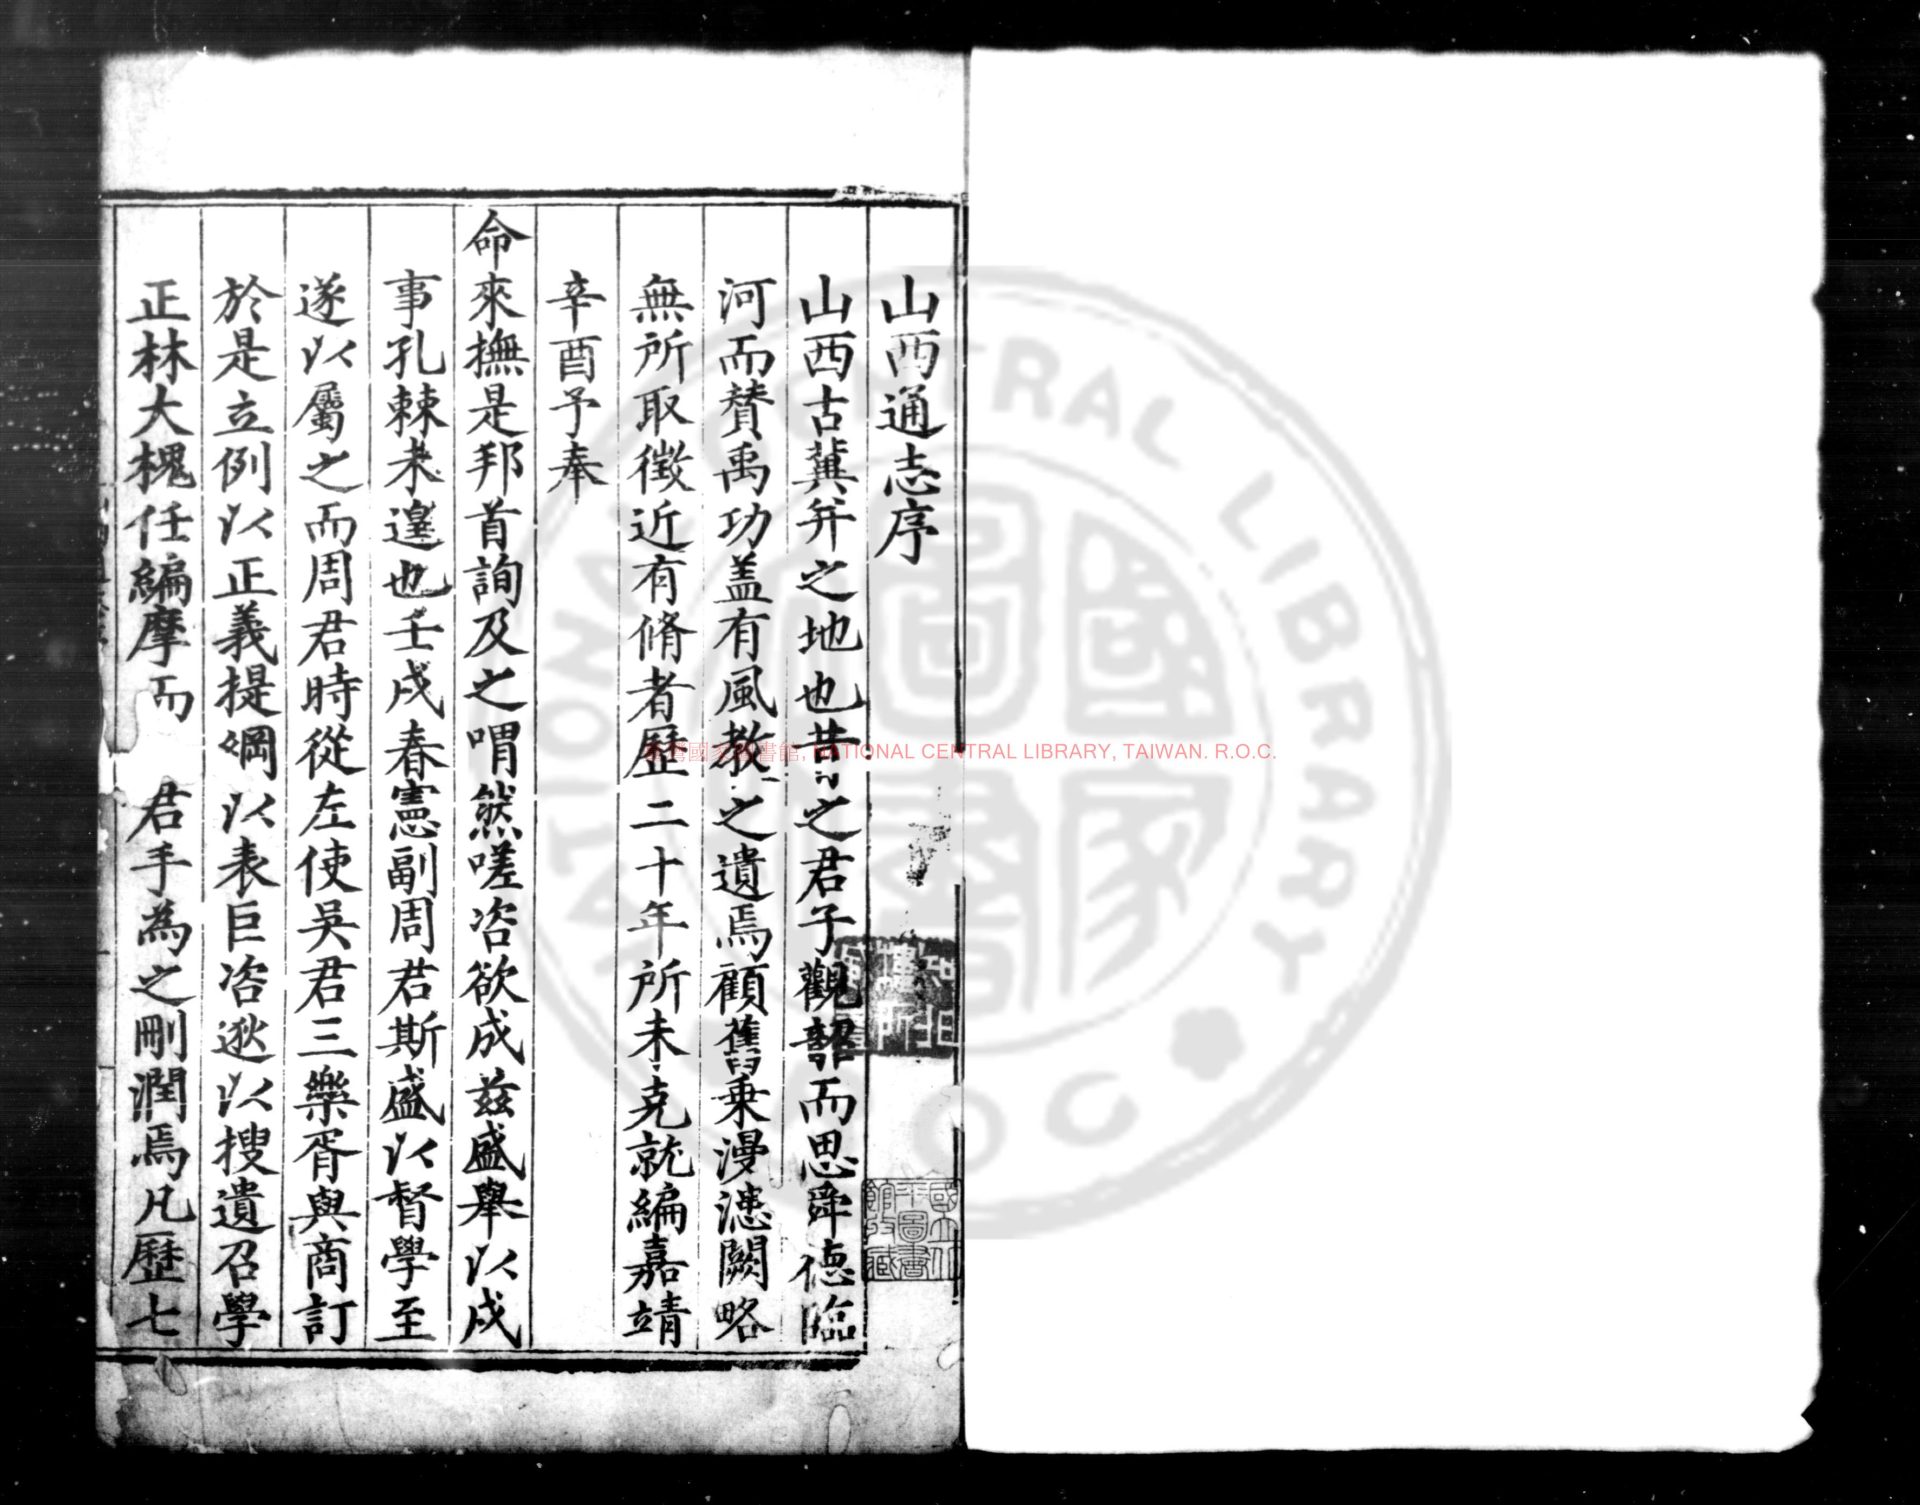 山西通志序
山西古冀并之地也昔之君子觀韶而思舜德臨
河而贊禹功盖有風教之遺焉顧舊乗漫漶闕略
無所取徵近有脩者歷二十年所未克就編嘉靖
辛酉予奉
命來撫是邦首詢及之喟然嗟咨欲成兹盛舉以戍
事孔棘未遑也壬戌春憲副周君斯盛以督學至
遂以屬之而周君時從左使吳君三樂胥與商訂
於是立例以正義提綱以表巨咨逖以搜遺召學
正林大槐任編摩而 君手為之刪潤焉凡歷七
國立北
平圖書
館收藏
臺灣國家圖書館, NATIONAL CENTRAL LIBRARY, TAIWAN. R.O.C.
NATIONAL CENTRAL LIBRARY
R.O.C.
國家圖書